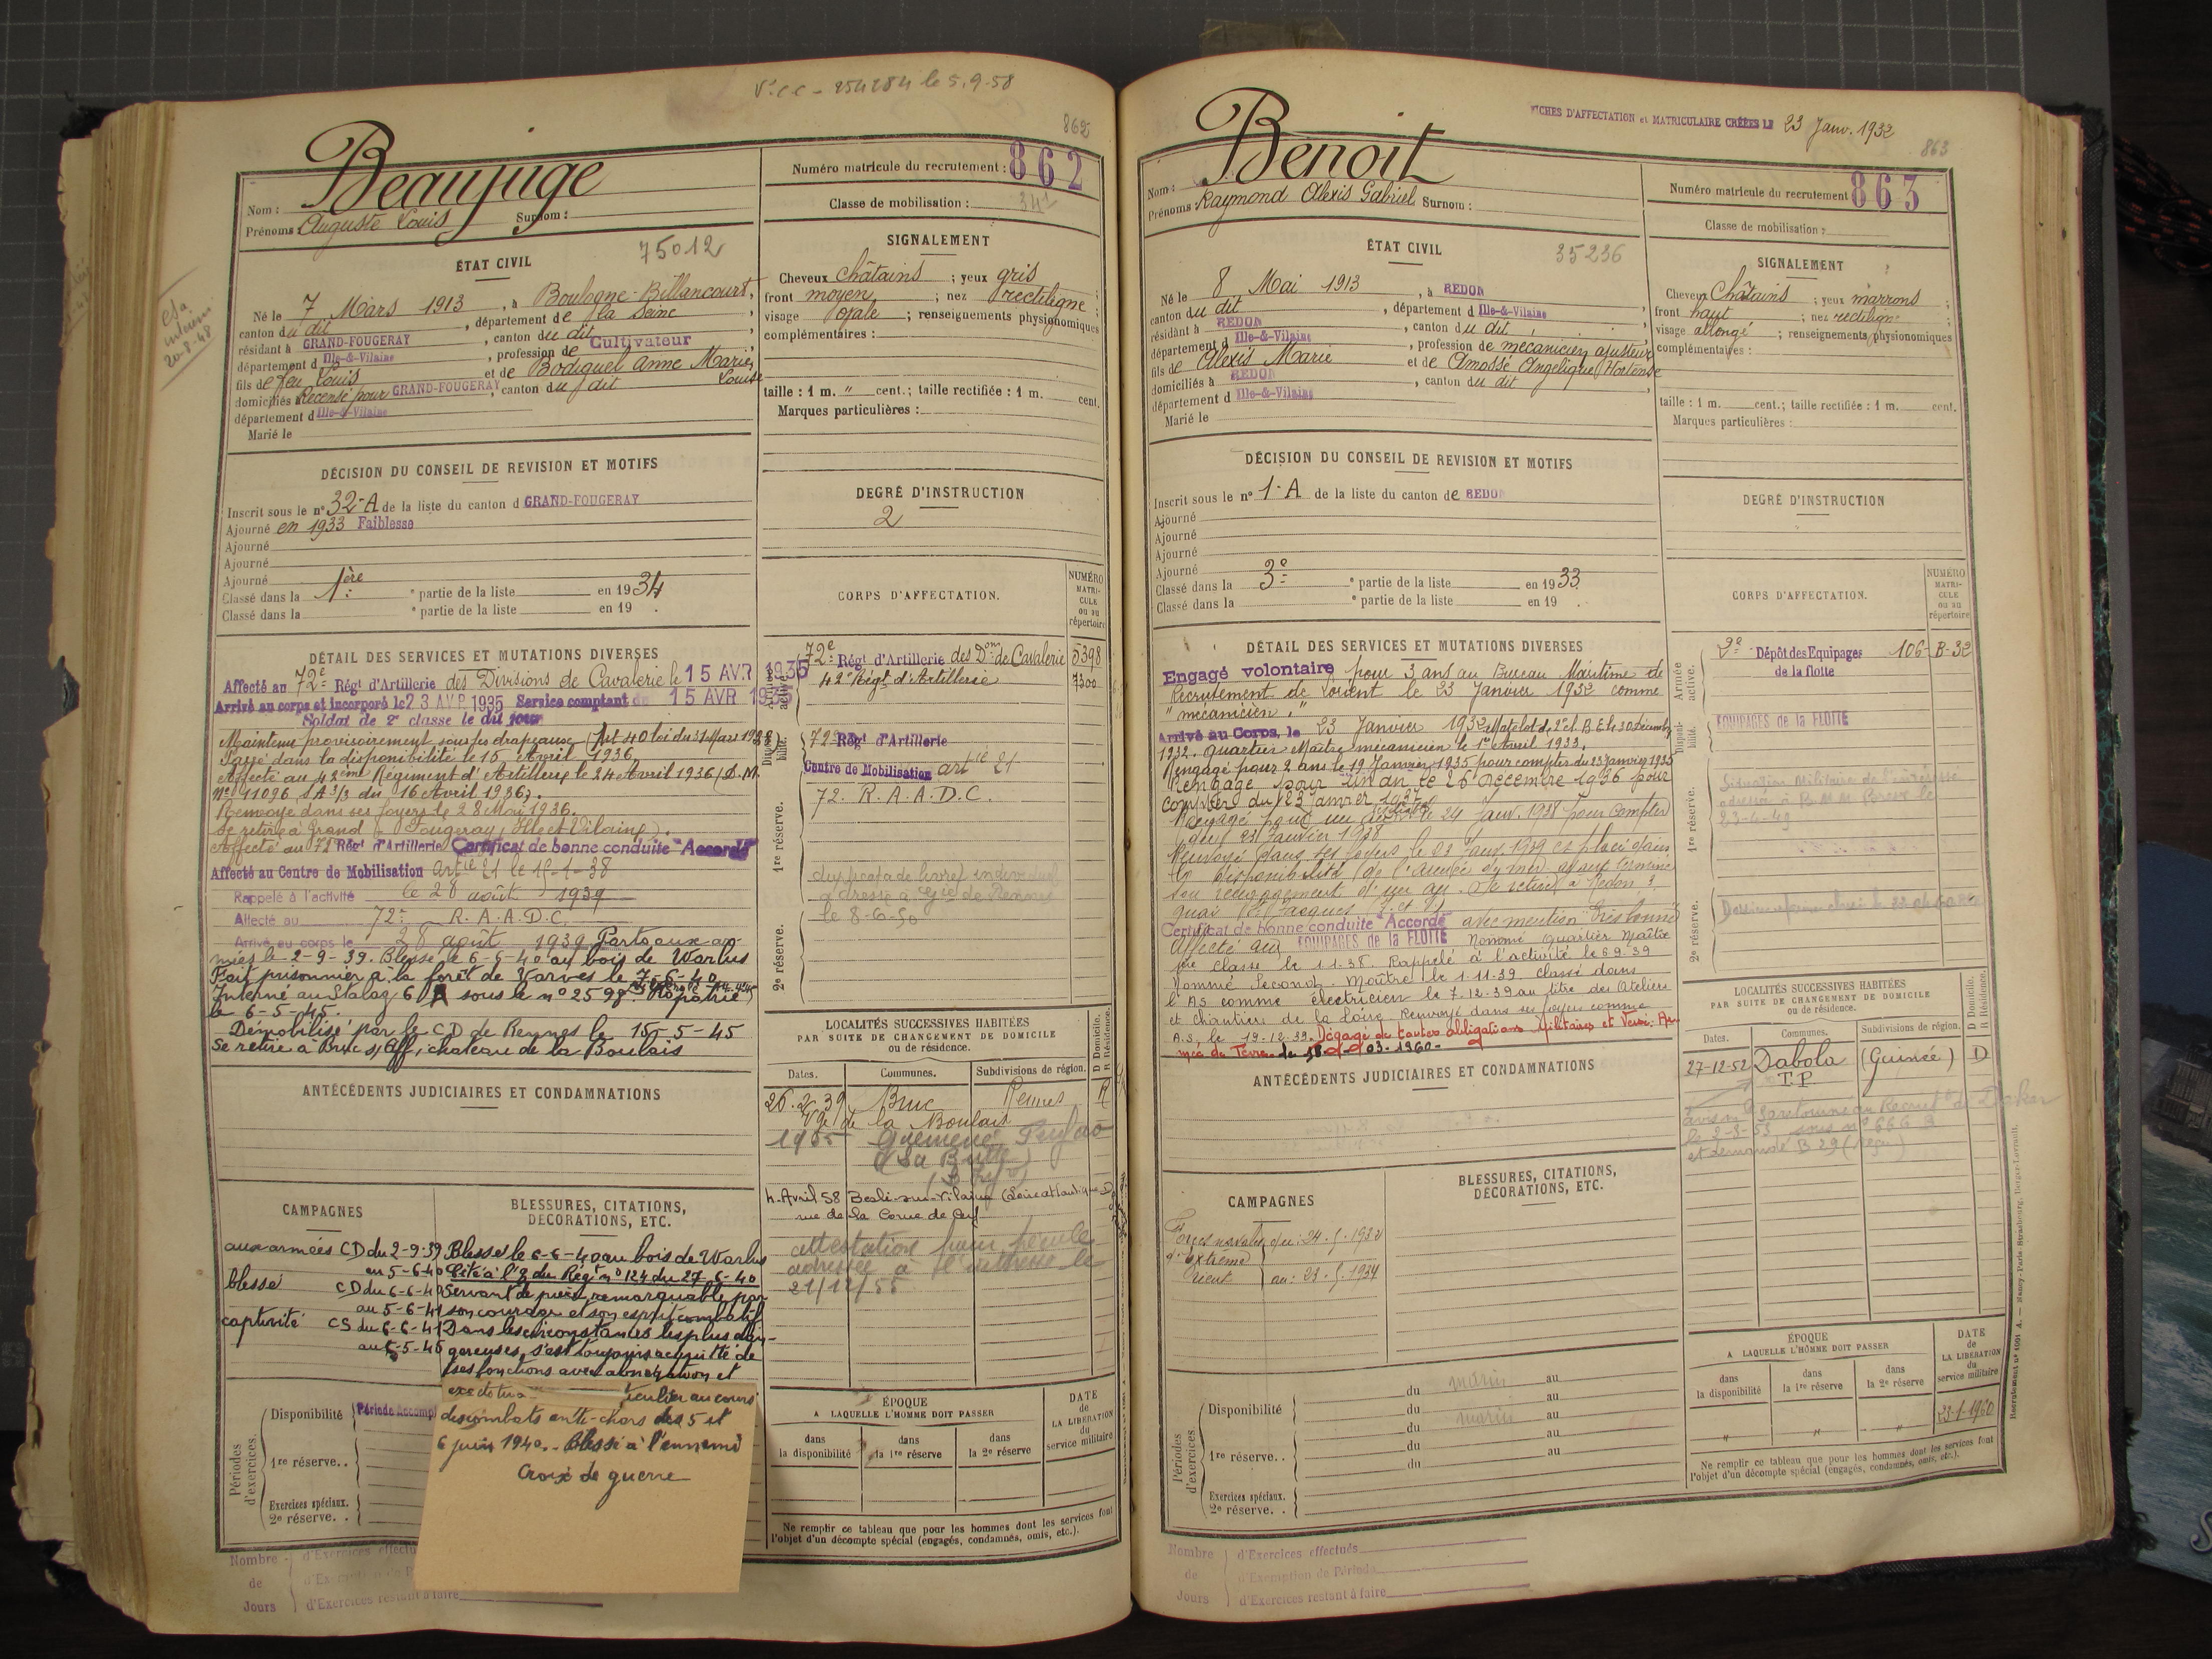 Vo c.c - 254284 le 5.9.58
862
Beaujuge
Nom :
Prénoms : Auguste Louis Surnom :
Numéro matricule du recrutement : 862
Classe de mobilisation :
ÉTAT CIVIL
75012
Né le 7 Mars 1913, à Boulogne-Billancourt,
canton du dit, département de la Seine,
résidant à GRAND-FOUGERAY, canton du dit
département d Ille-&-Vilaine, profession de Cultivateur
fils de feu Louis et de Bodiguel Anne Marie
Louise
domiciliés Recensé pour GRAND-FOUGERAY, canton du dit
département d Ille-&-Vilaine
Marié le
SIGNALEMENT
Cheveux châtains ; yeux gris
front moyen ; nez rectiligne ;
visage ovale ; renseignements physionomiques
complémentaires :
taille : 1 m. " cent. ; taille rectifiée : 1 m. cent.
Marques particulières :
DÉCISION DU CONSEIL DE REVISION ET MOTIFS
Inscrit sous le n° 32-A de la liste du canton d GRAND-FOUGERAY
Ajourné en 1933 Faiblesse
Ajourné
Ajourné
Ajourné
Classé dans la 1ère partie de la liste en 1934
Classé dans la ᵉ partie de la liste en 19 .
DEGRÉ D'INSTRUCTION
2
DÉTAIL DES SERVICES ET MUTATIONS DIVERSES
Affecté au 72e Régt d'Artillerie des Divisions de Cavalerie le 15 AVR 1935
Arrivé au corps et incorporé le 23 AVR 1935 Service comptant du 15 AVR 1935
Soldat de 2e classe le dit jour
Maintenu provisoirement sous les drapeaux (Art 40 loi du 31 Mars 1928)
Passé dans la disponibilité le 15 Avril 1936
Affecté au 42ème Régiment d'Artillerie le 24 Avril 1936 (D.M.
No 11096 du 16 Avril 1936).
Renvoyé dans ses foyers le 28 Mai 1936.
Se retire à Grand Fougeray, Ille et Vilaine).
Affecté au 72e Régt d'Artillerie Certificat de bonne conduite "Accordé"
Affecté au Centre de Mobilisation Artie 21 le 15-1-38
Rappelé à l'activité le 28 août 1939
Affecté au 72e R.A.A.D.C.
Arrivé au corps le 28 août 1939 Parts aux ar-
mées le 2-9-39. Blessé le 6-6-40 au bois de Warlus
Fait prisonnier à la forêt de Varves le 7-6-40
Interné au Stalag 6 A sous le no 2598 Rapatrié
le 6-5-45.
Démobilisé par le C D de Rennes le 15-5-45
Se retire à Bruc s/Aff, chateau de la Boulais
CORPS D'AFFECTATION.
NUMÉRO MATRICULE ou au répertoire
72e Régt d'Artillerie des Dons de Cavalerie 5398
42e Régt d'Artillerie 7300
72e Régt d'Artillerie
Centre de Mobilisation artie 21
72. R.A.A.D.C.
1re réserve.
2e réserve.
duplicata de livret individuel
adressé à de Rennes
le 8-6-50
ANTÉCÉDENTS JUDICIAIRES ET CONDAMNATIONS
LOCALITÉS SUCCESSIVES HABITÉES
PAR SUITE DE CHANGEMENT DE DOMICILE
ou de résidence.
D Domicile. R Résidence.
Dates. Communes. Subdivisions de région.
26.2.39 Bruc Rennes R
Vge de la Boulais
1955 Guémené Penfao
(La Butte)
4-Avril 58 Beslé-sur-Vilaine (Loire atlantique) D
rue de la Corne de Cerf
attestation pour pécule
adressée à l'intéressé le
21/12/55
CAMPAGNES
aux armées CD du 2-9-39
au 5-6-40
blessé CD du 6-6-40
au 5-6-41
captivité CS du 6-6-41
au 5-5-45
BLESSURES, CITATIONS,
DÉCORATIONS, ETC.
Blessé le 6-6-40 au bois de Warlus
Cité à l'O. du Régt no 124 du 27-6-40
Servant de pièce remarquable par
son courage et son esprit combatif
Dans les circonstances les plus dan-
gereuses, s'est toujours acquitté de
ses fonctions avec abnégation et
exactitu ticulier au cours
des combats anti-chars des 5 et
6 juin 1940. - Blessé à l'ennemi
Croix de guerre
Périodes d'exercices.
Disponibilité Période Accompl
1re réserve. .
Exercices spéciaux.
2e réserve. .
ÉPOQUE
A LAQUELLE L'HOMME DOIT PASSER
dans la disponibilité
dans la 1re réserve
dans la 2e réserve
DATE de LA LIBÉRATION du service militaire
Ne remplir ce tableau que pour les hommes dont les services font
l'objet d'un décompte spécial (engagés, condamnés, omis, etc.).
Nombre de Jours
d'Exercices effectu
d'Exercices restant à faire
FICHES D'AFFECTATION et MATRICULAIRE CRÉÉES LE 23 Janv. 1932
863
Benoit
Nom :
Prénoms : Raymond Alexis Gabriel Surnom :
Numéro matricule du recrutement 863
Classe de mobilisation :
ÉTAT CIVIL
35236
Né le 8 Mai 1913, à REDON
canton du dit, département d Ille-&-Vilaine
résidant à REDON, canton du dit,
département d Ille-&-Vilaine, profession de mécanicien ajusteur
fils de Alexis Marie et de Amossé Angélique Hortense
domiciliés à REDON, canton du dit
département d Ille-&-Vilaine
Marié le
SIGNALEMENT
Cheveux Châtains ; yeux marrons ;
front haut ; nez rectiligne ;
visage allongé ; renseignements physionomiques
complémentaires :
taille : 1 m. cent. ; taille rectifiée : 1 m. cent.
Marques particulières :
DÉCISION DU CONSEIL DE REVISION ET MOTIFS
Inscrit sous le n° 1-A de la liste du canton de REDON
Ajourné
Ajourné
Ajourné
Ajourné
Classé dans la 3e ᵉ partie de la liste en 1933
Classé dans la ᵉ partie de la liste en 19 .
DEGRÉ D'INSTRUCTION
DÉTAIL DES SERVICES ET MUTATIONS DIVERSES
Engagé volontaire pour 3 ans au Bureau Maritime de
Recrutement de Lorient le 23 Janvier 1932 comme
"mécanicien".
Arrivé au Corps, le 23 Janvier 1932 Matelot de 2e cl. B.E. le 30 Décembre
1932. Quartier Maître mécanicien le 1er Avril 1933.
Rengagé pour 2 ans le 19 Janvier 1935 pour compter du 23 janvier 1935
Rengagé pour un an le 26 décembre 1936 pour
compter du 23 janvier 1937
Rengagé pour un an le 24 Janv. 1938 pour compter
du 23 Janvier 1938
Renvoyé dans ses foyers le 23 Janv. 1939 et placé dans
la disponibilité de l'armée de mer ayant terminé
son rengagement d'un an. Se retire à Redon 3
quai St Jacques
Certificat de bonne conduite "Accordé" avec mention Très bonne
Affecté aux EQUIPAGES de la FLOTTE Nommé quartier Maître
1ère classe le 1.1.38. Rappelé à l'activité le 6.9.39
Nommé Second-Maître le 1-11-39 classé dans
l'A.S comme électricien le 7.12.39 au titre des Ateliers
et Chantiers de la Loire Renvoyé dans ses foyers comme
A.S. le 19-12-39. Dégagé de toutes obligations militaires
CORPS D'AFFECTATION.
NUMÉRO MATRICULE ou au répertoire
Armée active.
2e Dépôt des Equipages 106-B-32
de la flotte
Disponibilité.
EQUIPAGES de la FLOTTE
1re réserve.
Situation Militaire de l'intéressé
23-4-49
2e réserve.
ANTÉCÉDENTS JUDICIAIRES ET CONDAMNATIONS
LOCALITÉS SUCCESSIVES HABITÉES
PAR SUITE DE CHANGEMENT DE DOMICILE
ou de résidence.
D Domicile. R Résidence.
Dates. Communes. Subdivisions de région.
27-12-52 Dabola (Guinée) D
T.P.
CAMPAGNES
Forces navales du : 24.5.1932
d'Extrême
Orient au : 23.5.1934
BLESSURES, CITATIONS,
DÉCORATIONS, ETC.
Périodes d'exercices
Disponibilité
du marin au
du marin au
1re réserve. .
du au
du au
Exercices spéciaux.
2e réserve. .
ÉPOQUE
A LAQUELLE L'HOMME DOIT PASSER
dans la disponibilité
dans la 1re réserve
dans la 2e réserve
DATE de LA LIBÉRATION du service militaire
" " " 23-1-1960
Ne remplir ce tableau que pour les hommes dont les services font
l'objet d'un décompte spécial (engagés, condamnés, omis, etc.).
Nombre de Jours
d'Exercices effectués
d'Exemption de Période
d'Exercices restant à faire